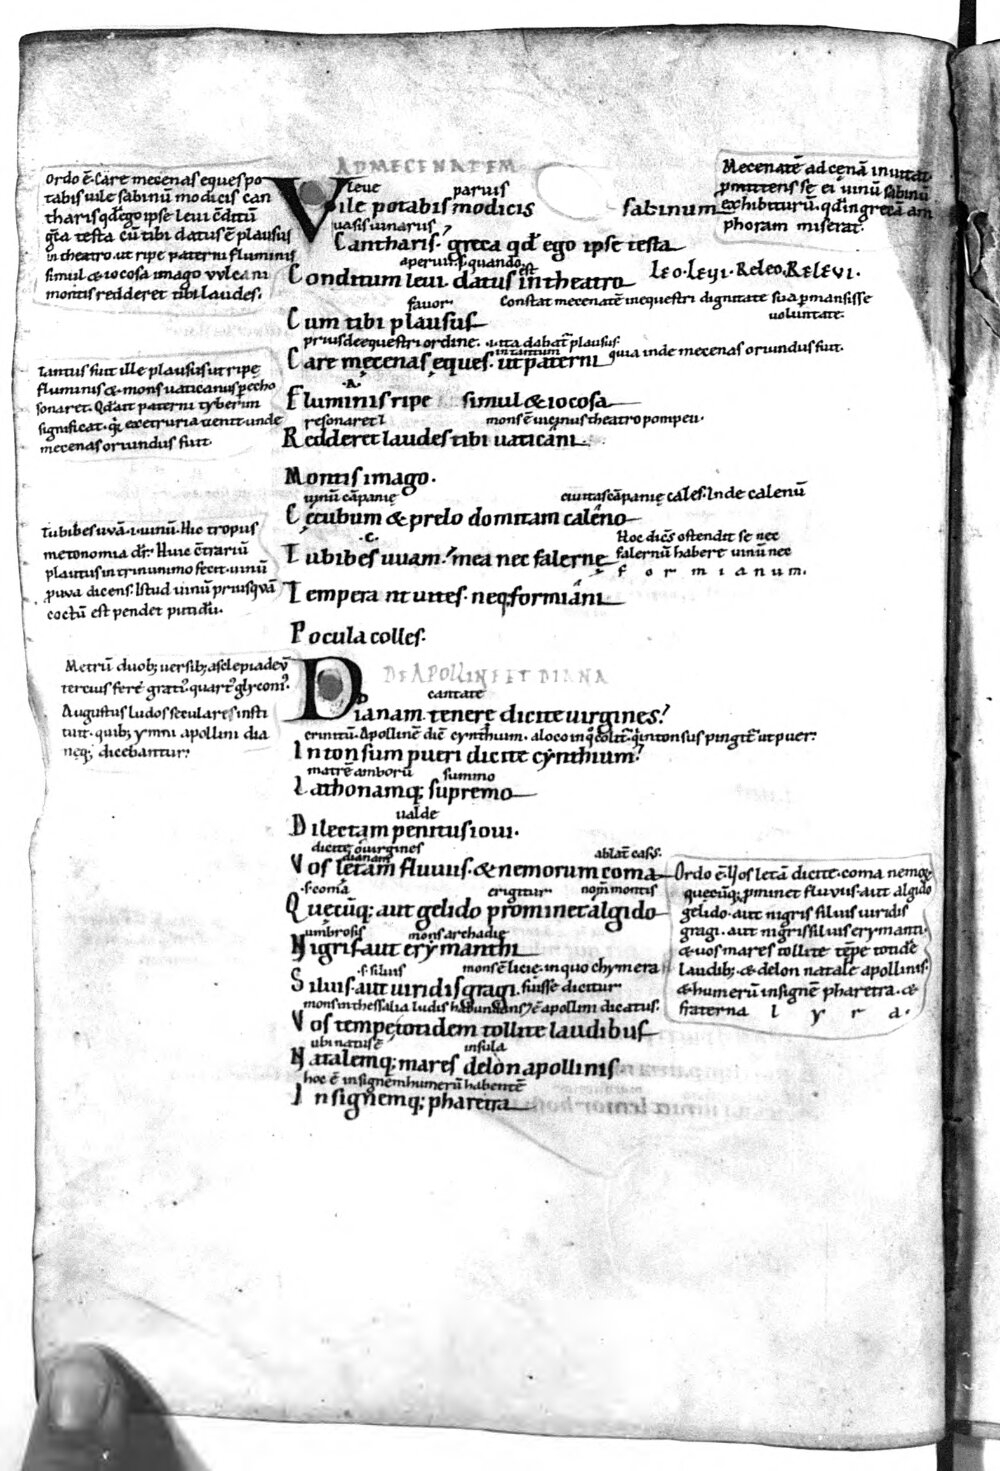 AD MECENATEM
Ordo ē. Care mecenas eques po
tabis uile sabinū modicis can
tharis qđ ego ipse leui cōditū
gꝛ̄a testa cū tibi datus ē plausus
in theatro. ut ripe paterni fluminis
simul & iocosa imago vvlcani
montis redderet tibi laudes.
leue paruis
Vile potabis modicis sabinum
uasis uinarus
Cantharis. greca qđ ego ipse testa
aperui. s. quando est
Conditum leui. datus in theatro
Mecenatē ad cenā inuitat
ꝓmittens se ei uinū sabinū
exhibiturū. qđ in grecā am
phoram miserat.
leo. leyi. Releo. RELEVI.
fauor. Constat mecenatē in equestri dignitate sua ꝑmansisse
uoluntate.
Cum tibi plausus
prius de equestri ordine. .i. ita dabat̄ plausus.
in tantum
Care mecenas eques. ut paterni
quia inde mecenas oriundus fuit.
Tantus fuit ille plausus ut ripę
fluminis &. mons uaticanus ꝑ echo
sonaret. Qđ ait paterni tyberim
significat. qi ex etruria uenit. unde
mecenas oriundus fuit.
.A.
Fluminis ripe simul & iocosa
resonaret mons ē uicinus theatro pompeii.
Redderet laudes tibi uaticani
Montis imago.
uinū cāpanię ciuitas cāpanię cales. Inde calenū
Cęcubum & prelo domitam caleno
Tu bibes uvā .i. uinū. Hic tropus
metonomia dr̄. Huic c̄trariū
plautus in trinummo fecit. uinū
ꝓ uva dicens. Istud uinū priusquā
coctū est pendet putidū.
.C.
Tu bibes uuam. mea nec falerne
Hoc diēs ostendit se nec
falernū habere uinū nec
formianum.
Temperant uites. neq; formiani
Pocula colles.
DE APOLLINE ET DIANA
Metrū duob; uersib; asclepiadeū
tercius fere gratiꝰ. quartꝰ glyconiꝰ.
Augustus ludos seculares insti
tuit. quib; ymni apollini dia
neq; dicebantur.
cantate
Dianam tenerę dicite uirgines.
crinitū. Apollinē diē cynthium. a loco in q̊ colit̄. q̊ intonsus pingit̄ ut puer.
Intonsum pueri dicite cynthium
matrē amborū summo
Lathonamq; supremo
ualde
Dilectam penitus ioui.
dicite o uirgines ablat̄ casꝰ.
dianam
Vos lętam fluuiis. & nemorum coma
.s. coma erigitur nom̄ montis
Quęcūq; aut gelido prominet algido
umbrosis mons archadię
Nigris aut erymanthi
.s. siluis mons ē licie. in quo chymera
Siluis. aut uiridis gragi. fuisse dicitur
mons in thessalia ludis habundans & ē apollini dicatus.
Vos tempe totidem tollite laudibus
ubi natus ē insula
Natalemq; mares delon apollinis
hoc ē insignem humerū habentē
Insignemq; pharetra
Ordo ē. Vos letā dicite. coma nemoꝝ
quęcūq; ꝓminet fluvus. aut algido
gelido. aut nigris siluis uiridis
gragi. aut nigris siluis erymanti.
& uos mares tollite tēpe totidē
laudib; & delon natalē apollinis.
& humerū insignē pharetra. &
fraterna lyra.